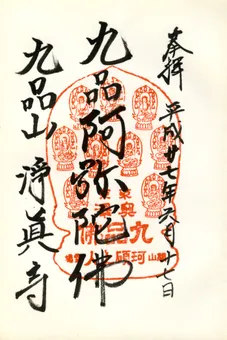 奉拝 平成廿七年六月十七日
九品阿弥陀佛
九品山 淨眞寺
九品佛